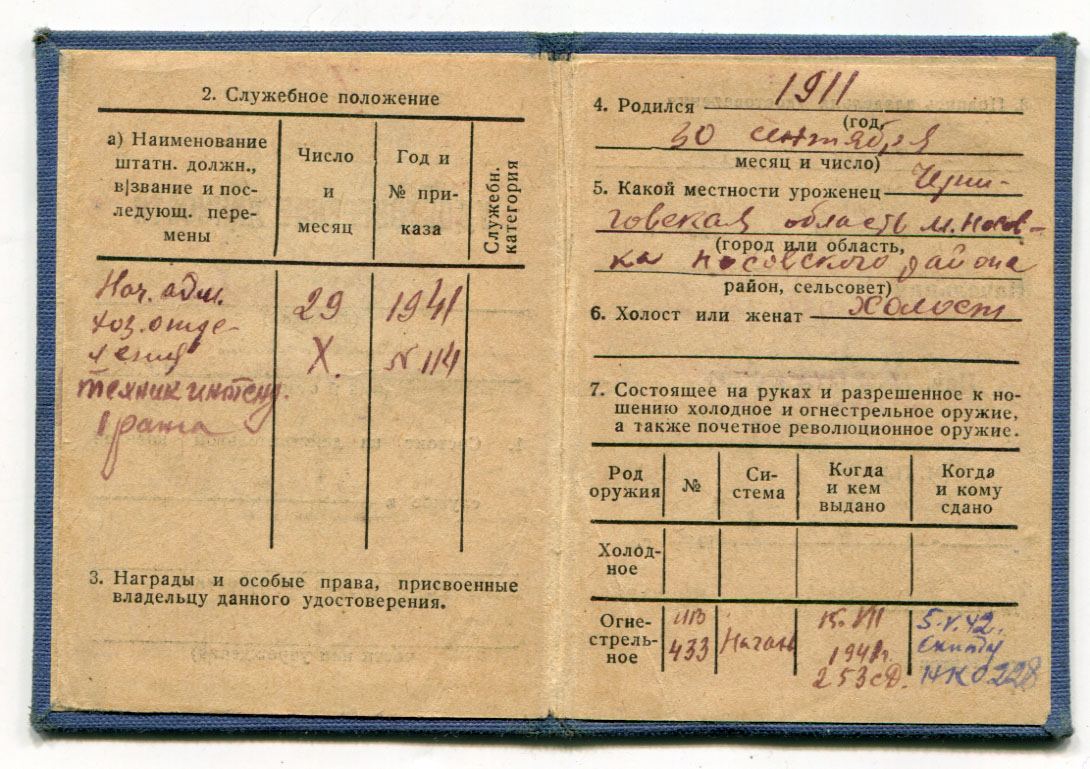 2. Служебное положение
а) Наименование
штатн. должн.,
в|звание и пос-
ледующ. пере-
мены
Число
и
месяц
Год и
№ при-
каза
Служебн.
категория
Нач. адм.
хоз. отде-
ления
техник интенд.
1 ранга
29
X.
1941
№ 114
3. Награды и особые права, присвоенные
владельцу данного удостоверения.
4. Родился 1911
(год,
30 сентября
месяц и число)
5. Какой местности уроженец Черни-
говская область м. Носов-
(город или область,
ка Носовского района
район, сельсовет)
6. Холост или женат холост
7. Состоящее на руках и разрешенное к но-
шению холодное и огнестрельное оружие,
а также почетное революционное оружие.
Род
оружия
№
Си-
стема
Когда
и кем
выдано
Когда
и кому
сдано
Холод-
ное
Огне-
стрель-
ное
433
Наган
1941г.
253 сд.
5.V.42г.
НКО 228